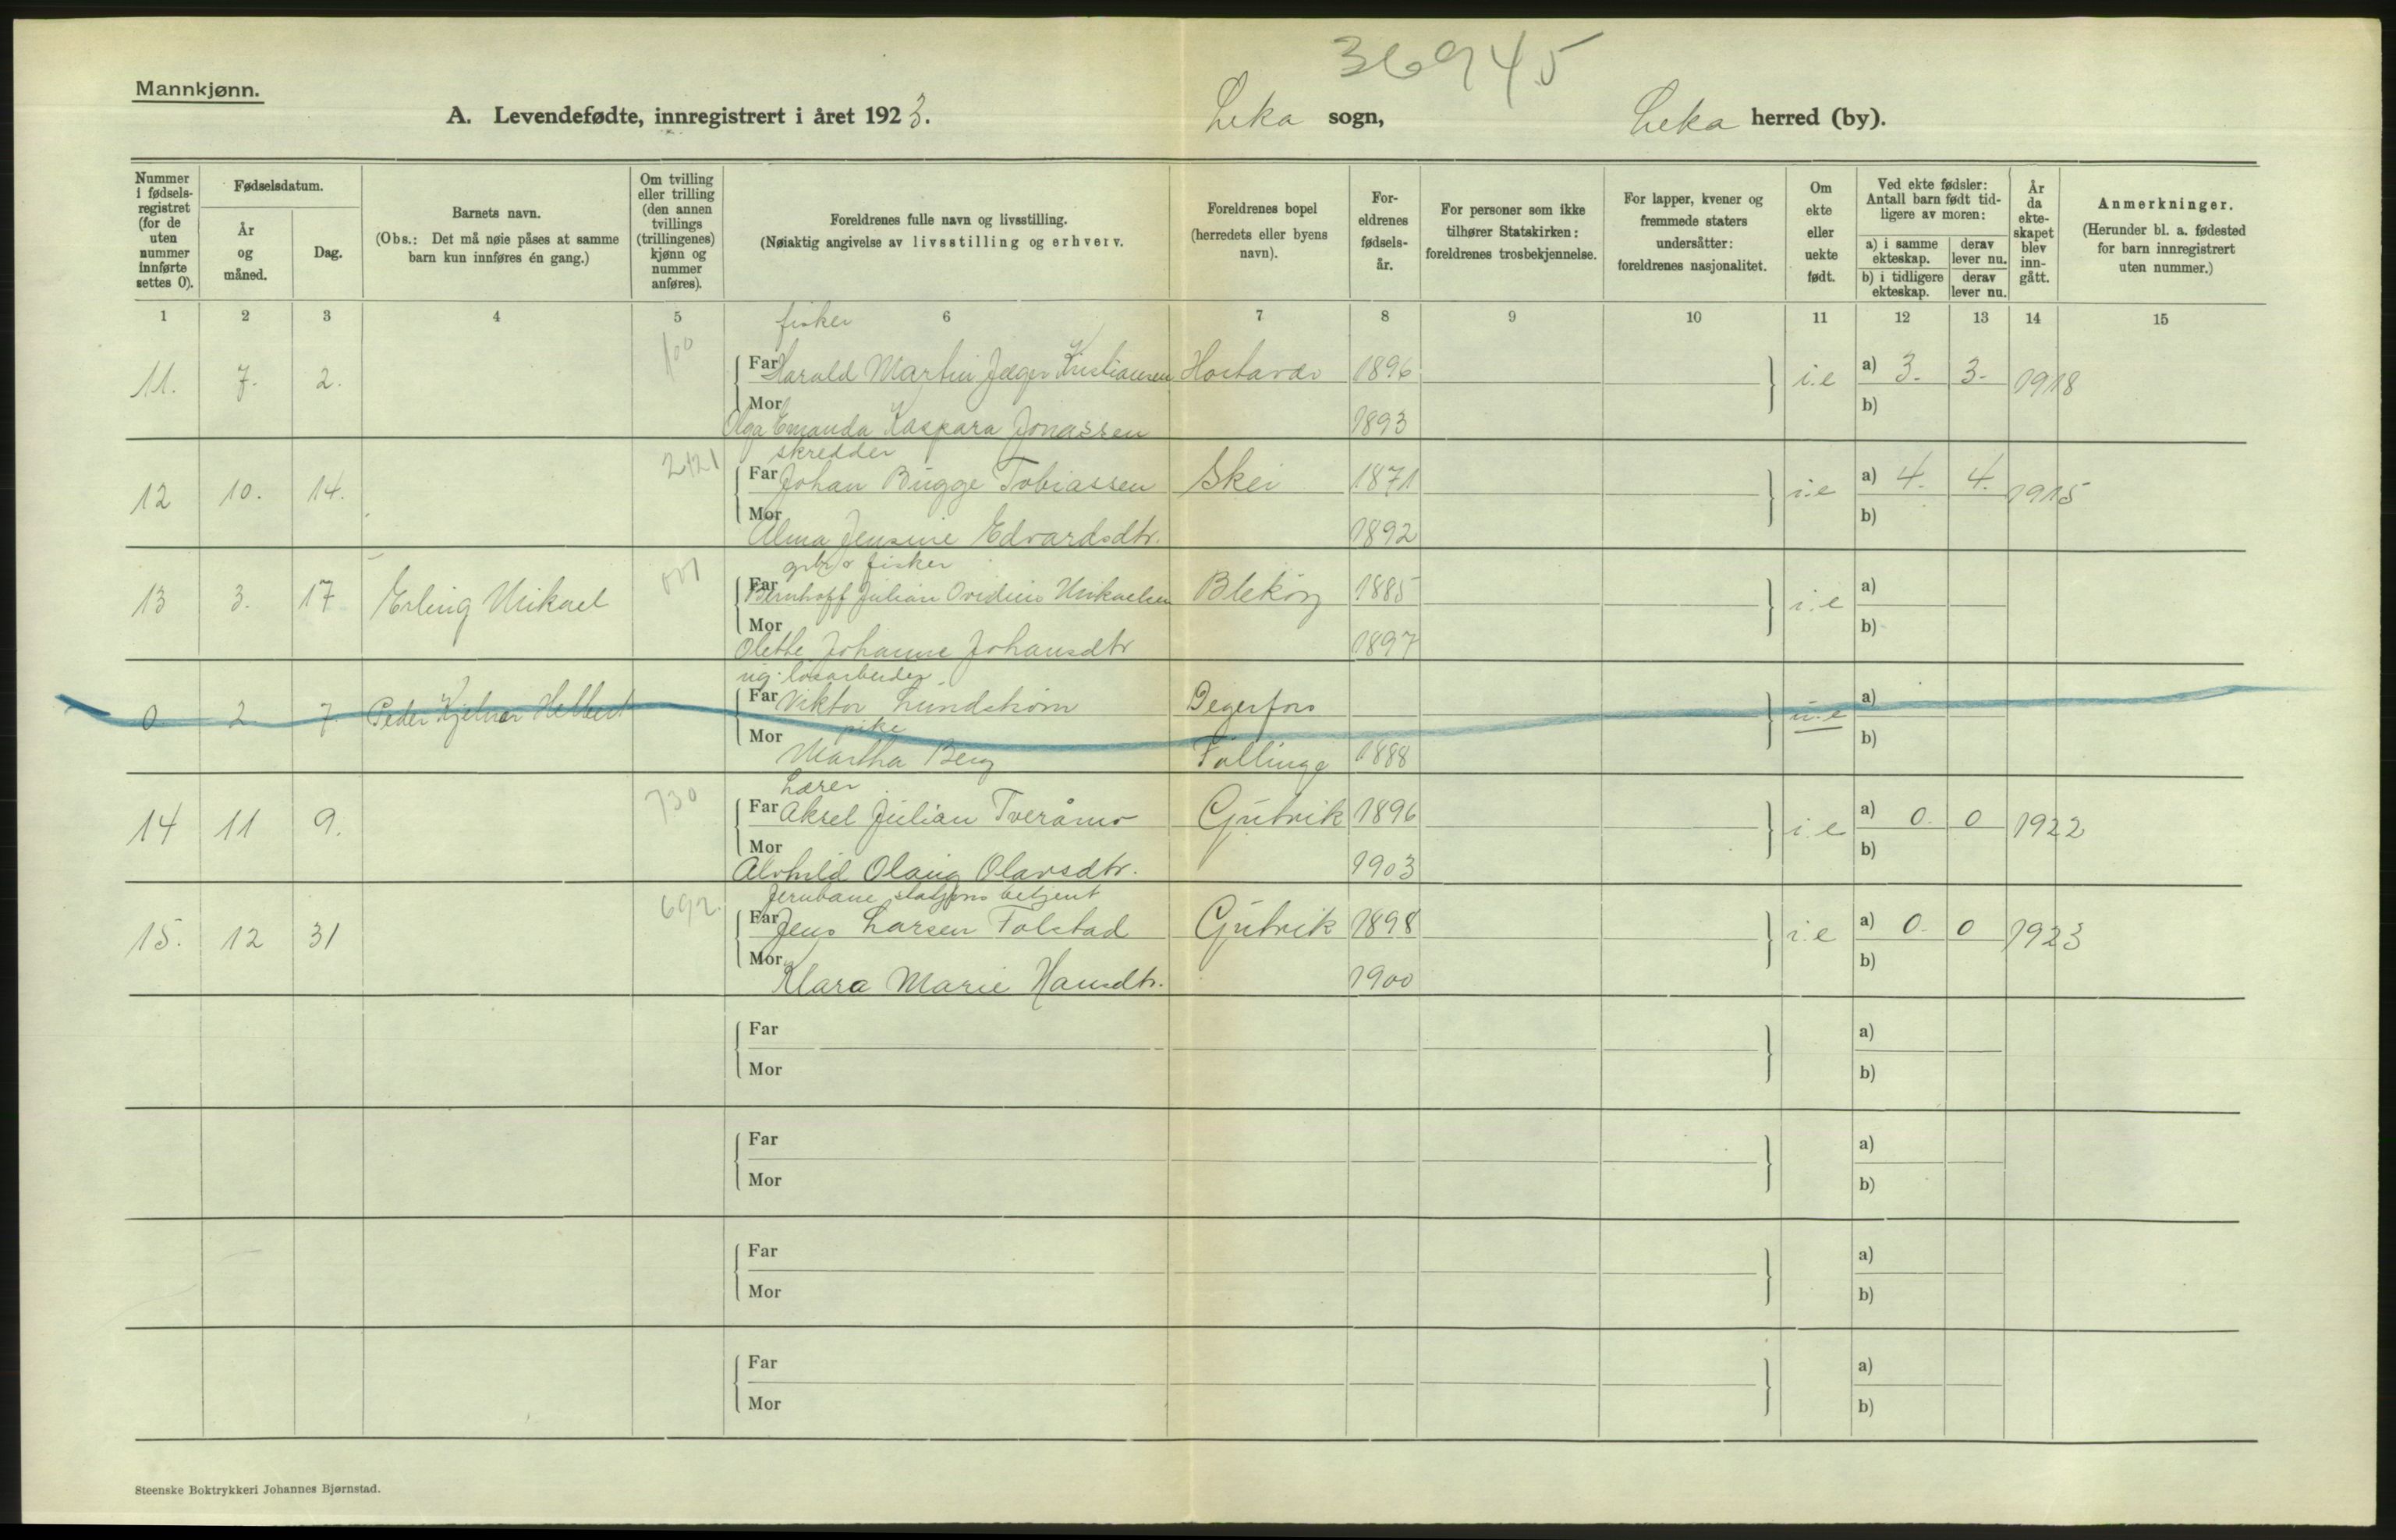 36945
Mannkjønn.
A. Levendefødte, innregistrert i året 1923.
Leka sogn,
Leka herred (by).
Nummer i fødselsregistret (for de uten nummer innførte settes 0).
Fødselsdatum.
År og måned.
Dag.
Barnets navn.
(Obs.: Det må nøie påses at samme barn kun innføres én gang.)
Om tvilling eller trilling (den annen tvillings (trillingenes) kjønn og nummer anføres).
Foreldrenes fulle navn og livsstilling.
(Nøiaktig angivelse av livsstilling og erhverv.
Foreldrenes bopel (herredets eller byens navn).
Foreldrenes fødselsår.
For personer som ikke tilhører Statskirken: foreldrenes trosbekjennelse.
For lapper, kvener og fremmede staters undersåtter: foreldrenes nasjonalitet.
Om ekte eller uekte født.
Ved ekte fødsler: Antall barn født tidligere av moren:
a) i samme ekteskap.
derav lever nu.
b) i tidligere ekteskap.
derav lever nu.
År da ekteskapet blev inngått.
Anmerkninger.
(Herunder bl. a. fødested for barn innregistrert uten nummer.)
1 2 3 4 5 6 7 8 9 10 11 12 13 14 15
fisker
100
11. 7. 2. Far Harald Martin Jæger Kristiansen Hortavær 1896 i.e a) 3. 3. 1918
Mor b)
Olga Emanda Kaspara Jonassen 1893
skredder
2421
12 10. 14. Far Johan Bugge Tobiassen Skei 1871 i.e a) 4. 4. 1915
Mor b)
Alma Jensine Edvardsdtr. 1892
grbr & fisker
001
13 3. 17 Erling Mikael Far Bernhoff Julian Ovidius Mikaelsen Blekøy 1885 i.e a)
Mor b)
Olette Johanne Johansdtr 1897
ug. løsarbeider
0 2 7. Peder Hjelmer Helbert Far Viktor Lundstrøm Degerfors u.e a)
pike
Mor b)
Martha Berg Føllinge 1888
Lærer
730
14 11 9. Far Aksel Julian Tveråmo Gutvik 1896 i.e a) 0. 0 1922
Mor b)
Alvhild Olaug Olavsdtr. 1903
Jernbane stasjons betjent
692.
15. 12 31 Far Jens Larsen Folstad Gutvik 1898 i.e a) 0. 0 1923
Mor b)
Klara Marie Hansdtr. 1900
Far a)
Mor b)
Far a)
Mor b)
Far a)
Mor b)
Far a)
Mor b)
Steenske Boktrykkeri Johannes Bjørnstad.